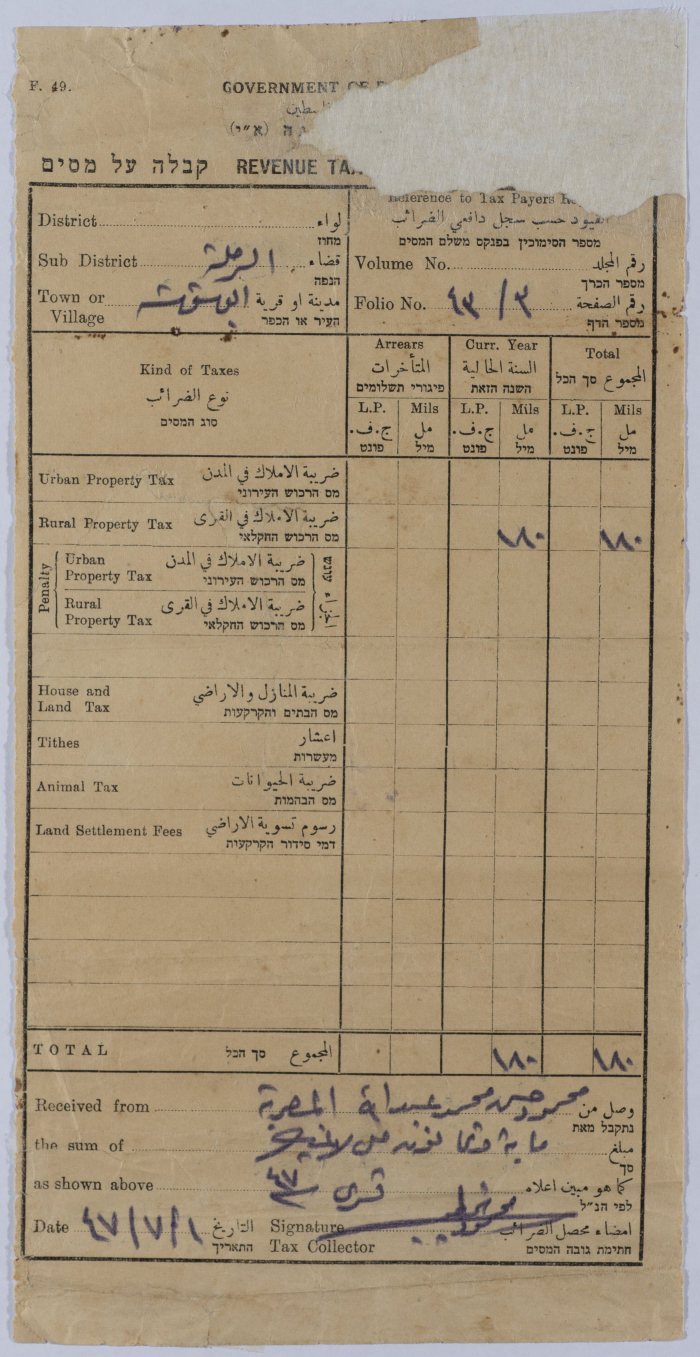 F. 49.
GOVERNMENT OF
(א"י)
קבלה על מסים REVENUE TA
Reference to Tax Payers R
القيود حسب سجل دافعي الضرائب
מספר הסימוכין בפנקס משלם המסים
District لواء
מחוז
Sub District الرملة قضاء
הנפה
Town or مدينة او قرية
Village העיר או הכפר
Volume No. رقم المجلد
מספר הכרך
Folio No. ٤٣/٣ رقم الصفحة
מספר הדף
Kind of Taxes
نوع الضرائب
סוג המסים
Arrears Curr. Year Total
المتأخرات السنة الحالية المجموع סך הכל
פיגורי תשלומים השנה הזאת
L.P. Mils L.P. Mils L.P. Mils
ج.ف. مل ج.ف. مل ج.ف. مل
פונט מיל פונט מיל פונט מיל
Urban Property Tax ضريبة الاملاك في المدن
מס הרכוש העירוני
Rural Property Tax ضريبة الاملاك في القرى ١٨٠ ١٨٠
מס הרכוש החקלאי
Penalty
Urban ضريبة الاملاك في المدن
Property Tax מס הרכוש העירוני
Rural ضريبة الاملاك في القرى
Property Tax מס הרכוש החקלאי
עונש
House and ضريبة المنازل والاراضي
Land Tax מס הבתים והקרקעות
Tithes اعشار
מעשרות
Animal Tax ضريبة الحيوانات
מס הבהמות
Land Settlement Fees رسوم تسوية الاراضي
דמי סידור הקרקעות
TOTAL סך הכל المجموع ١٨٠ ١٨٠
Received from محمود حسن محمد عبدالله وصل من
נתקבל מאת
the sum of ماية وثمانون مل مبلغ
סך
as shown above قرى ٤٧ كما هو مبين اعلاه
לפי הנ"ל
Date ٤٧/٧/١ التاريخ
התאריך
Signature امضاء محصل الضرائب
Tax Collector חתימת גובה המסים